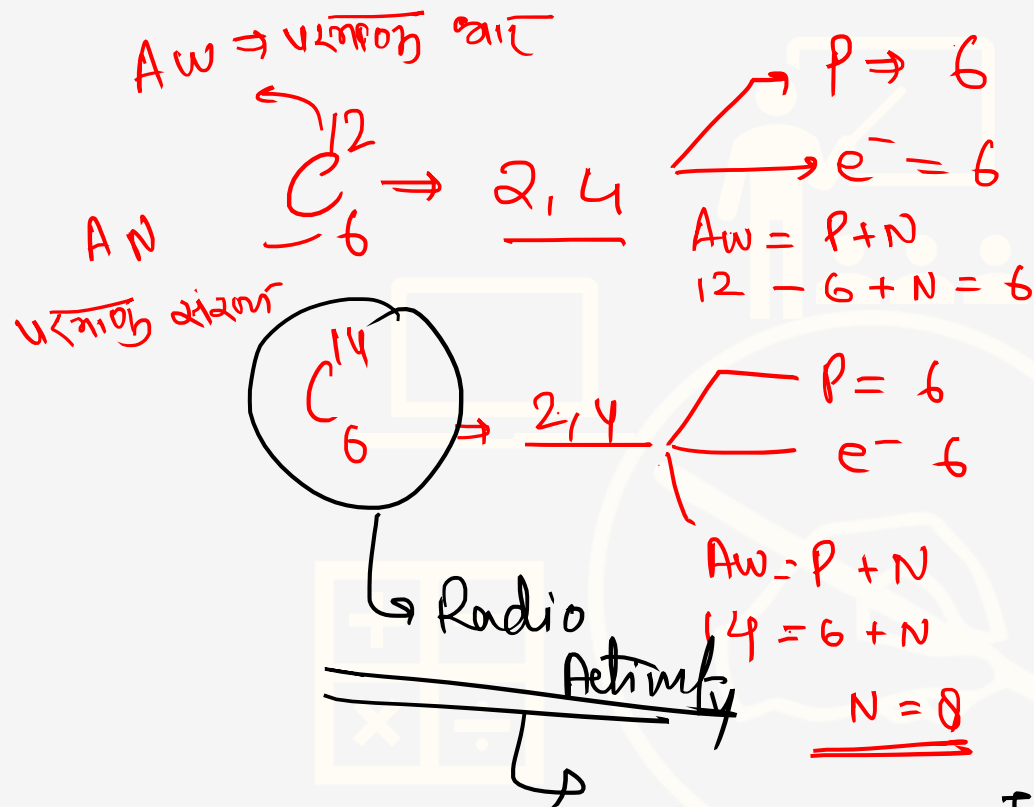 AW ⇒ परमाणु भार
C¹²₆ ⇒ 2,4
P ⇒ 6
e⁻ = 6
AN
परमाणु संख्या
AW = P+N
12 - 6 + N = 6
C¹⁴₆ ⇒ 2,4
P = 6
e⁻ 6
AW = P + N
14 = 6 + N
N = 8
Radio
Activity